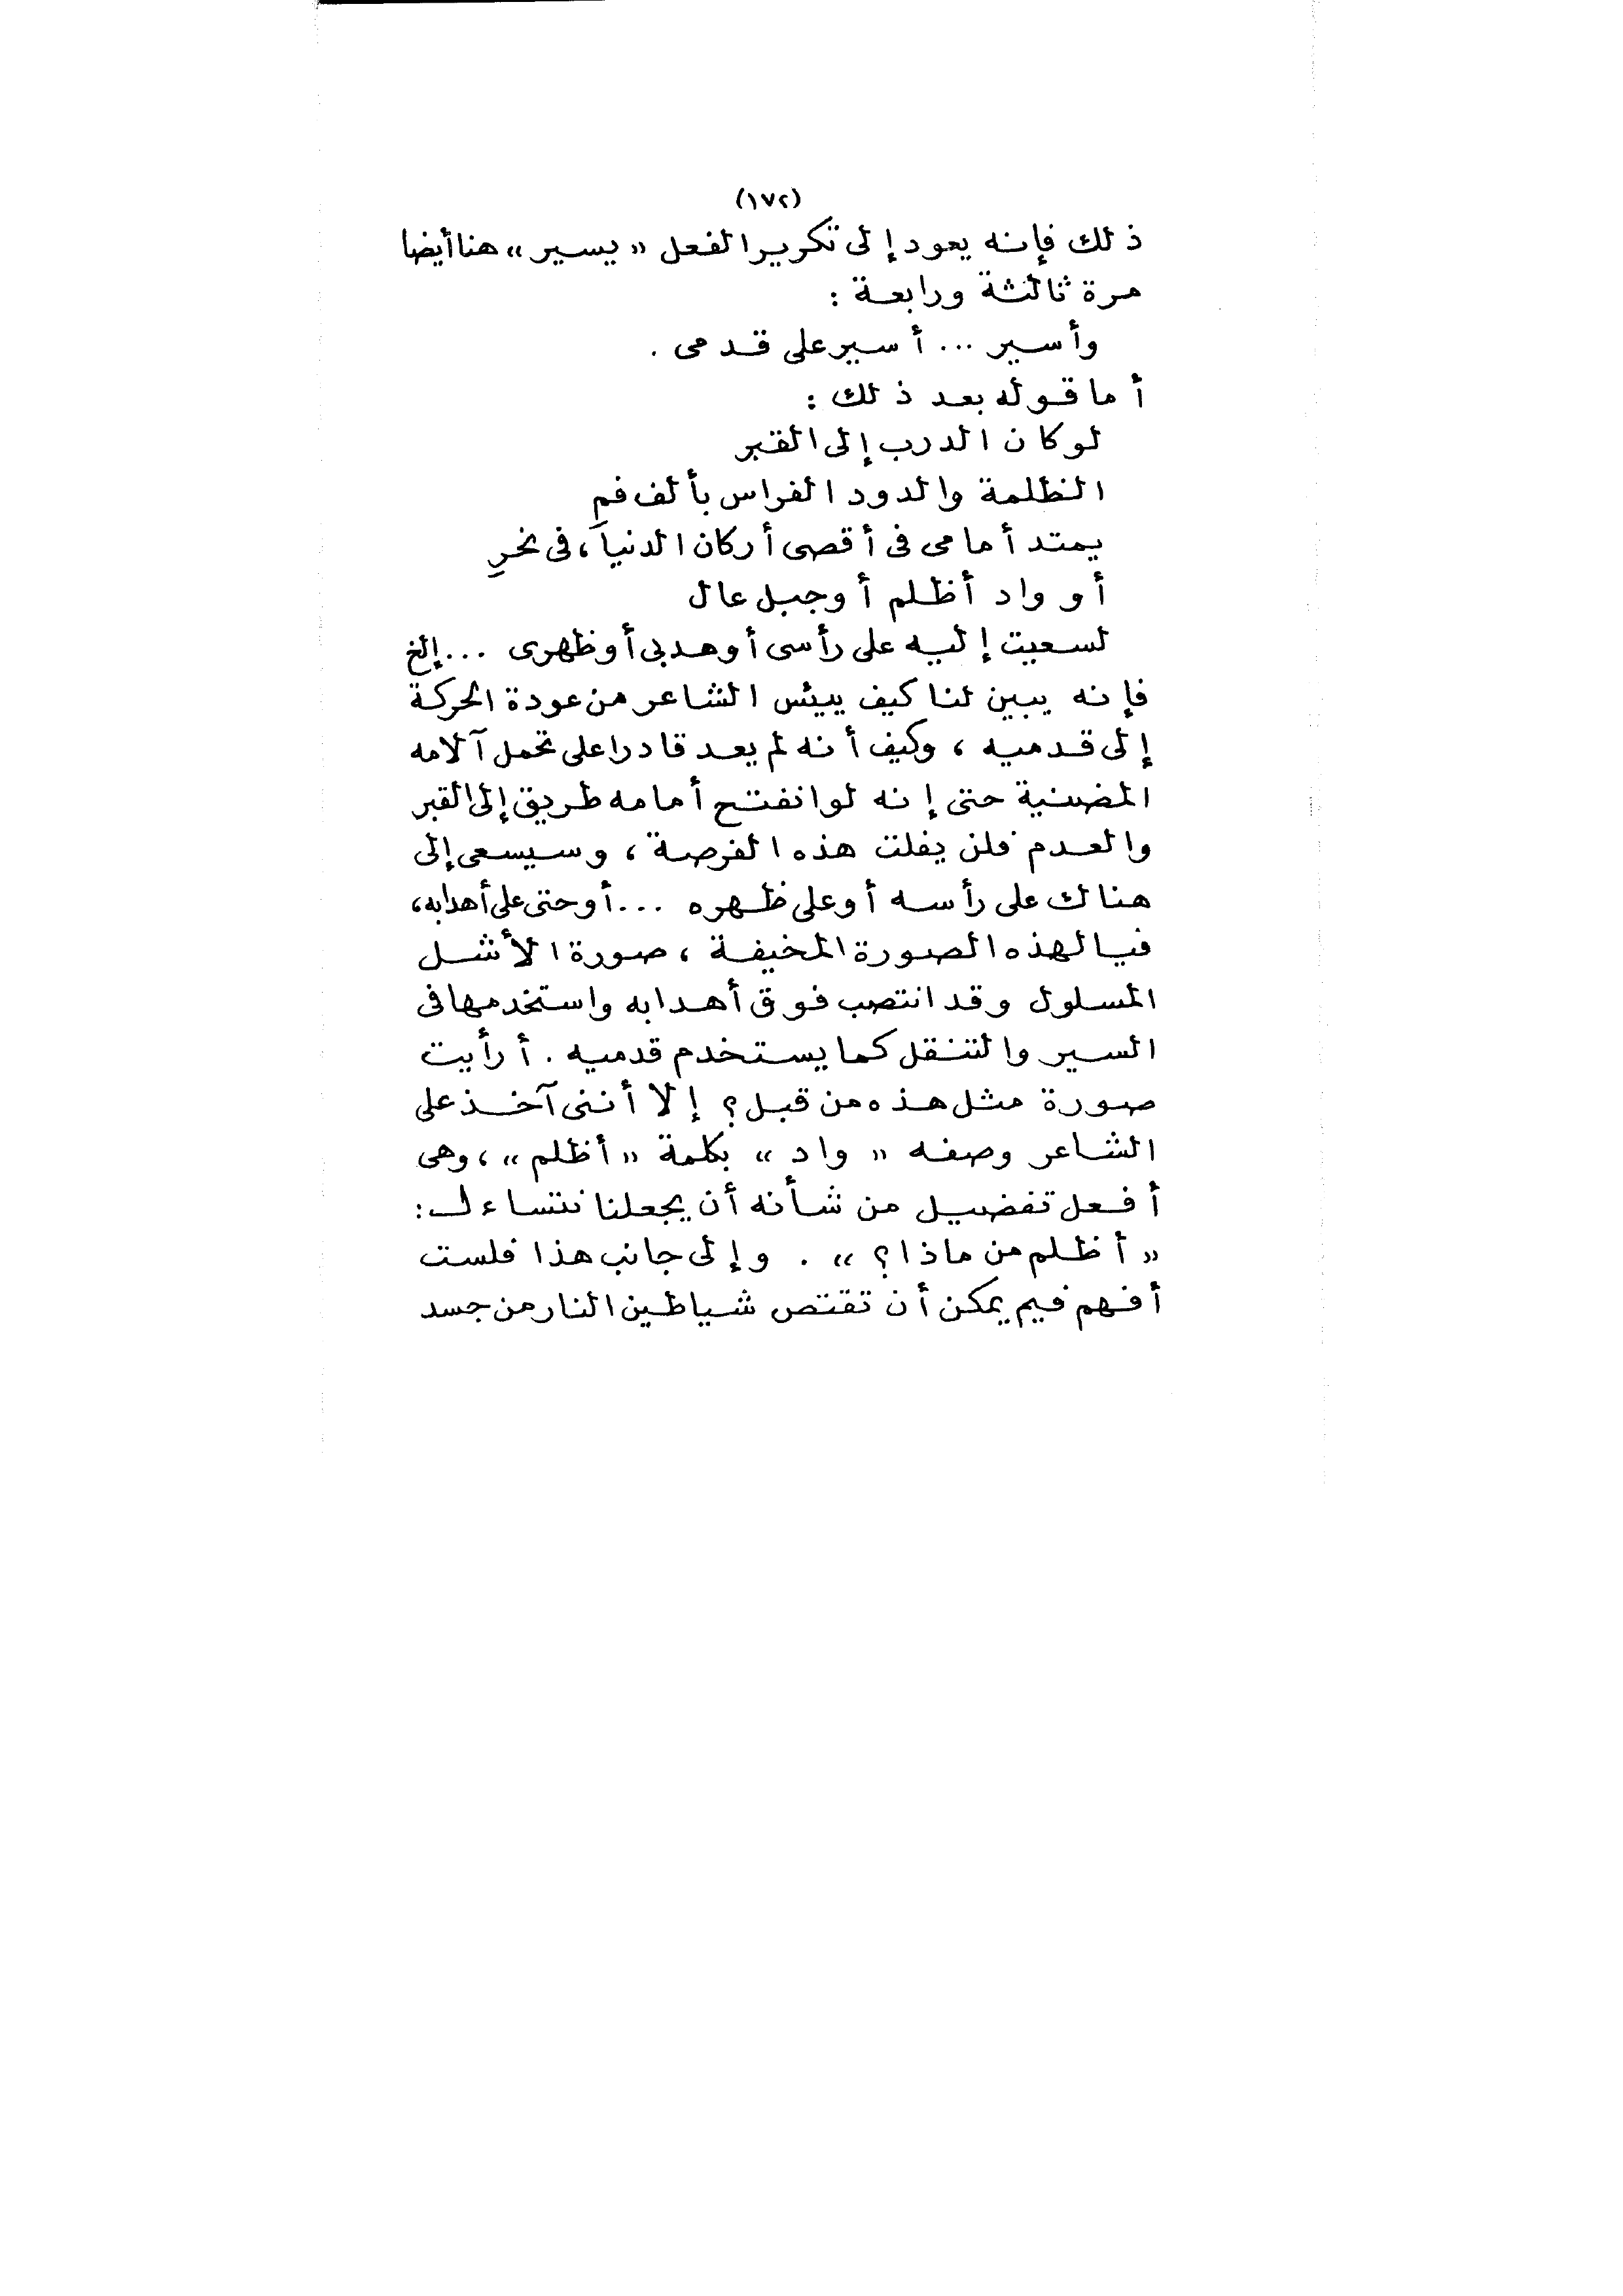 (١٧٢)
ذلك فإنه يعود إلى تكرير الفعل «يسير» هنا أيضا
مرة ثالثة ورابعة :
وأسير ... أسير على قدمى .
أما قوله بعد ذلك :
لو كان الدرب إلى القبر
الظلمة والدود الفراس بألف فمِ
يمتد أمامى فى أقصى أركان الدنيا ، فى نخرِ
أو واد أظلم أو جبل عال
لسعيت إليه على رأسى أو هدبى أو ظهرى ... إلخ
فإنه يبين لنا كيف ييئس الشاعر من عودة الحركة
إلى قدميه ، وكيف أنه لم يعد قادرا على تحمل آلامه
المضنية حتى إنه لو انفتح أمامه طريق إلى القبر
والعدم فلن يفلت هذه الفرصة ، وسيسعى إلى
هناك على رأسه أو على ظهره ... أو حتى على أهدابه ،
فيا لهذه الصورة المخيفة ، صورة الأشل
المسلول وقد انتصب فوق أهدابه واستخدمها فى
السير والتنقل كما يستخدم قدميه . أرأيت
صورة مثل هذه من قبل ؟ إلا أننى آخذ على
الشاعر وصفه «واد» بكلمة «أظلم» ، وهى
أفعل تفضيل من شأنه أن يجعلنا نتساءل :
«أظلم من ماذا ؟» . وإلى جانب هذا فلست
أفهم فيم يمكن أن تقتص شياطين النار من جسد